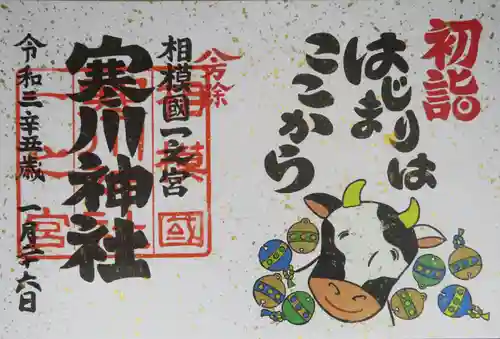 初詣
はじまりは
ここから
八方除
相模國一之宮
寒川神社
令和三辛丑歳 一月二十六日